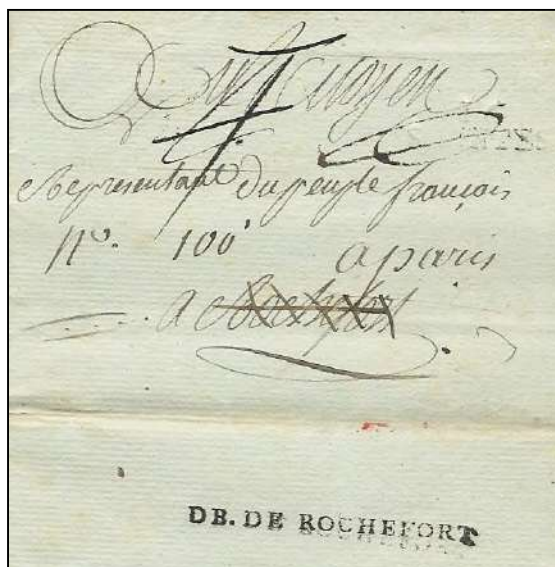 citoyen
Representant du peuple françois
n°. 100 a paris
a Rochefort
DB. DE ROCHEFORT